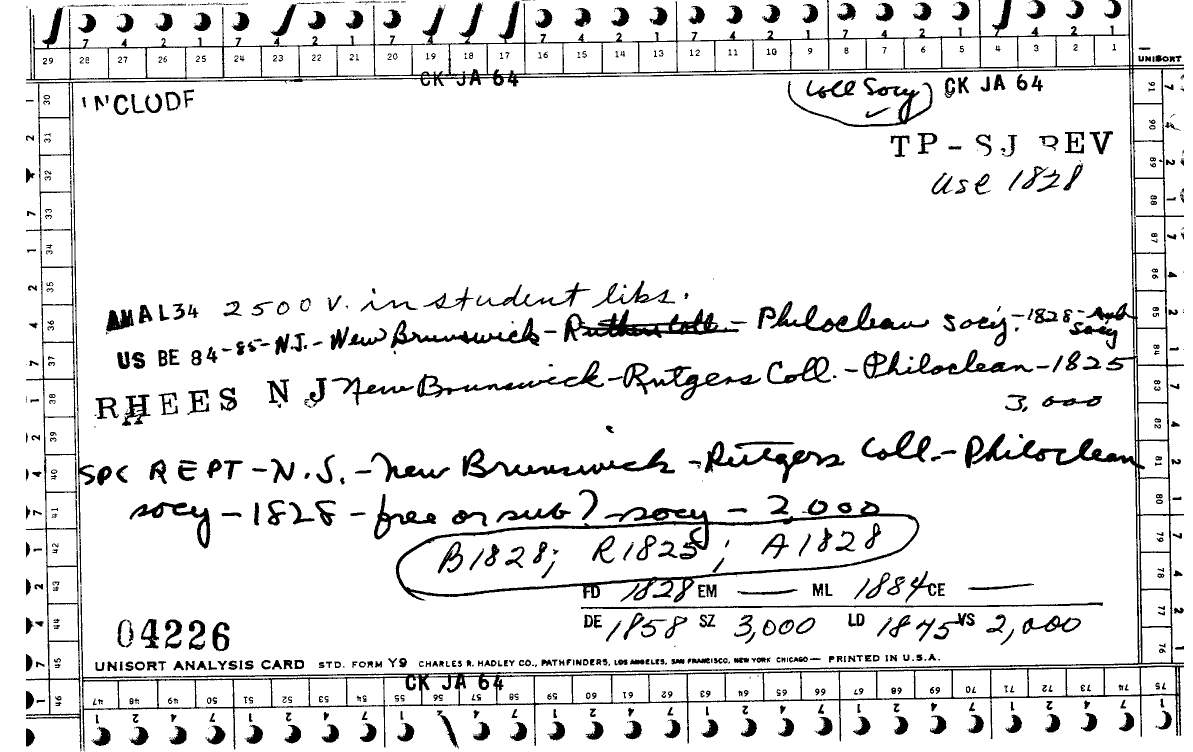 7 4 2 1 7 4 2 1 7 4 2 1 7 4 2 1 7 4 2 1
29 28 27 26 25 24 23 22 21 20 19 18 17 16 15 14 13 12 11 10 9 8 7 6 5 4 3 2 1
UNISORT
CK JA 64
INCLUDE
Coll Socy ✓ CK JA 64
TP-SJ REV
use 1828
AMAL34 2500 v. in student libs.
US BE 84-85-N.J.- New Brunswick- Philoclean socy.-1828-sub socy
RHEES N J New Brunswick-Rutgers Coll.-Philoclean-1825
3,000
SPC REPT-N.J.-New Brunswick-Rutgers Coll.-Philoclean
socy-1828-free or sub? socy-2,000
B1828; R1825; A1828
FD 1828 EM — ML 1884 CE —
DE 1858 SZ 3,000 LD 1875 VS 2,000
04226
UNISORT ANALYSIS CARD STD. FORM Y9 CHARLES R. HADLEY CO., PATHFINDERS, LOS ANGELES, SAN FRANCISCO, NEW YORK CHICAGO — PRINTED IN U.S.A.
CK JA 64
47 48 49 50 51 52 53 54 55 56 57 58 59 60 61 62 63 64 65 66 67 68 69 70 71 72 73 74 75
30 31 32 33 34 35 36 37 38 39 40 41 42 43 44 45 46
91 90 89 88 87 86 85 84 83 82 81 80 79 78 77 76